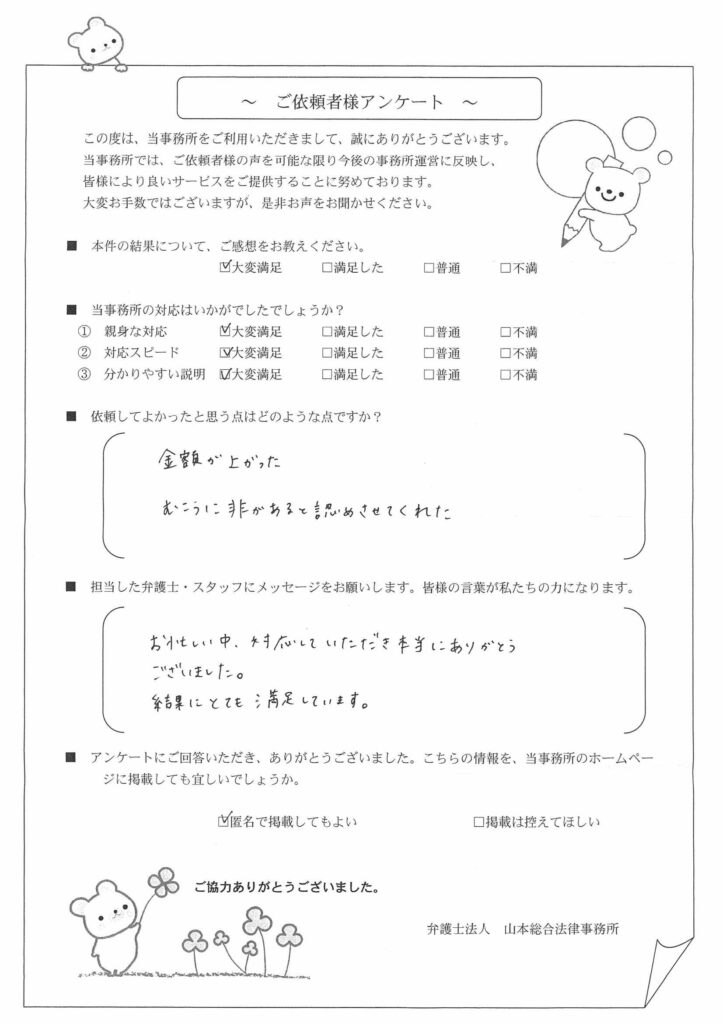 ～ ご依頼者様アンケート ～
この度は、当事務所をご利用いただきまして、誠にありがとうございます。
当事務所では、ご依頼者様の声を可能な限り今後の事務所運営に反映し、
皆様により良いサービスをご提供することに努めております。
大変お手数ではございますが、是非お声をお聞かせください。
■ 本件の結果について、ご感想をお教えください。
☑大変満足 □満足した □普通 □不満
■ 当事務所の対応はいかがでしたでしょうか？
① 親身な対応 ☑大変満足 □満足した □普通 □不満
② 対応スピード ☑大変満足 □満足した □普通 □不満
③ 分かりやすい説明 ☑大変満足 □満足した □普通 □不満
■ 依頼してよかったと思う点はどのような点ですか？
金額が上がった
むこうに非があると認めさせてくれた
■ 担当した弁護士・スタッフにメッセージをお願いします。皆様の言葉が私たちの力になります。
お忙しい中、対応していただき本当にありがとう
ございました。
結果にとても満足しています。
■ アンケートにご回答いただき、ありがとうございました。こちらの情報を、当事務所のホームペー
ジに掲載しても宜しいでしょうか。
☑匿名で掲載してもよい □掲載は控えてほしい
ご協力ありがとうございました。
弁護士法人 山本総合法律事務所